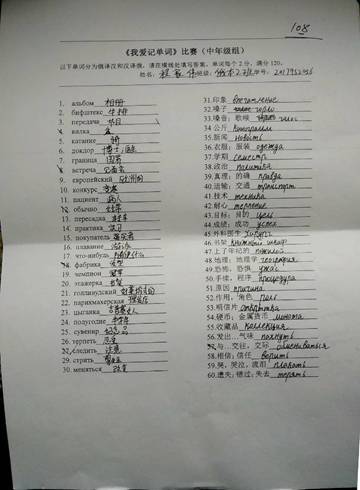 108
《我爱记单词》比赛（中年级组）
以下单词分为俄译汉和汉译俄，请在横线处填写答案。单词每个2分，满分120。
姓名： 班级： 学号：
1. альбом 相册
2. бифштекс 牛排
3. передача 节目
4. вилка
5. катание
6. доктор 博士；医生
7. граница 国界
8. встреча
9. европейский 欧洲的
10. конкурс 竞赛
11. пациент 病人
12. обычно 往常
13. пересадка 转车
14. практика 实习
15. покупатель 购买者
16. плавание 游泳
17. что-нибудь
18. фабрика
19. чемпион 冠军
20. этажерка 书架
21. голливудский 好莱坞的
22. парикмахерская 理发店
23. цыганка
24. полугодие 半年
25. сувенир 纪念品
26. терпеть 忍受
27. следить 注意
28. стричь
29. меняться 改变
31. 印象 впечатление
32. 嗓子 горло
33. 嗓音；歌喉 голос
34. 公斤 килограмм
35. 新闻 новость
36. 衣服；服装 одежда
37. 学期 семестр
38. 政治 политика
39. 真理；的确 правда
40. 运输；交通 транспорт
41. 技术 техника
42. 耐心 терпение
43. 目标；目的 цель
44. 成绩；成功 успех
45. 外科医生 хирург
46. 书架 книжный шкаф
47. 上了年纪的 пожилой
48. 地理；地理学 география
49. 恐怖，恐惧 ужас
50. 手续，程序 процедура
51. 原因 причина
52. 作用，角色 роль
53. 明信片 открытка
54. 硬币；金属货币 монета
55. 收藏品 коллекция
56. 发出…气味 пахнуть
57. 与…交往，交际
58. 相信；信任 верить
59. 哭，哭泣，流泪 плакать
60. 遗失；错过；失去 терять